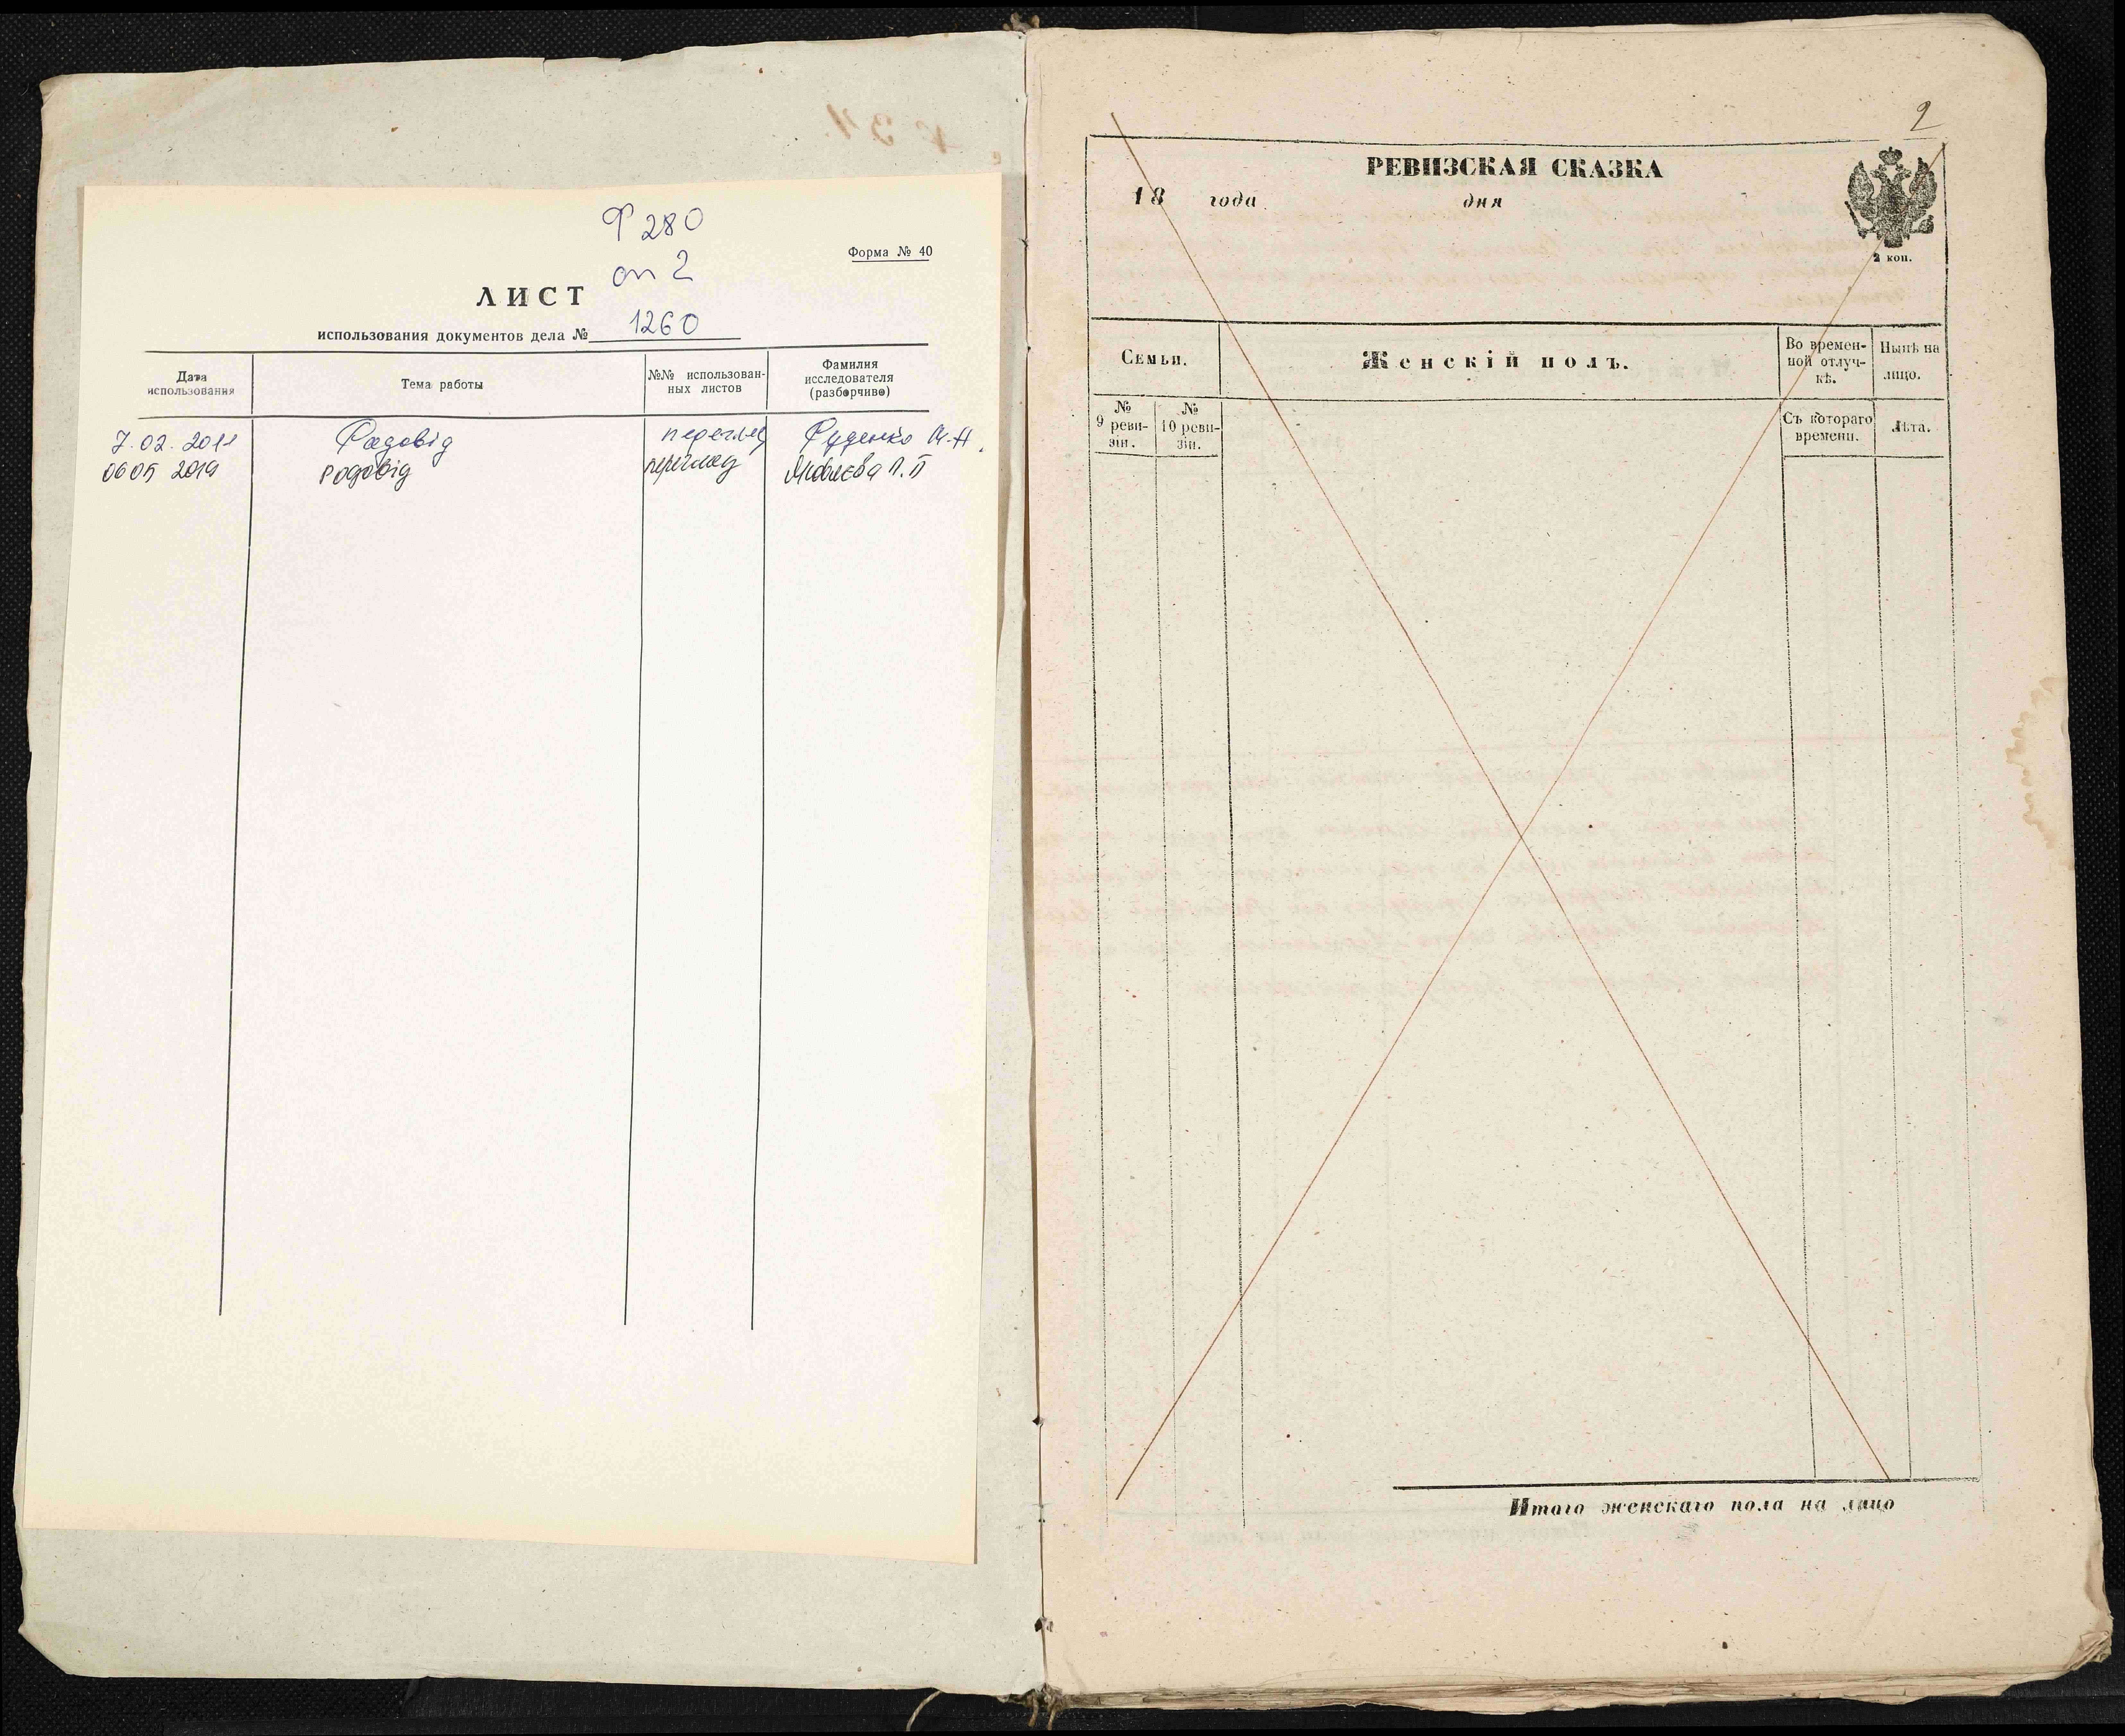 Ф 280
оп 2
Форма № 40
ЛИСТ
использования документов дела № 1260
Дата использования
Тема работы
№№ использован-
ных листов
Фамилия
исследователя
(разборчиво)
7.02.2011 Родовід перегляд Руденко М.Н.
06 05 2019 родовід перегляд П.П
2
РЕВИЗСКАЯ СКАЗКА
18 года дня
2 коп.
Семьи.
Женскій полъ.
Во времен-
ной отлуч-
кѣ.
Нынѣ на
лицо.
№
9 реви-
зіи.
№
10 реви-
зіи.
Съ котораго
времени.
Лѣта.
Итого женскаго пола на лицо